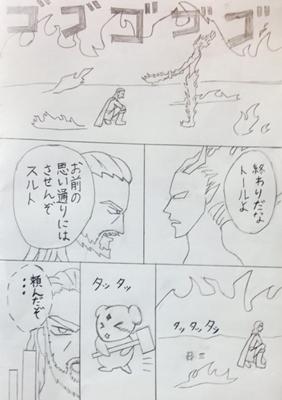 ゴゴゴゴゴ
終わりだな
トールよ
お前の
思い通りには
させんぞ
スルト
タッタッタッ
タッタッ
頼んだぞ
・・・